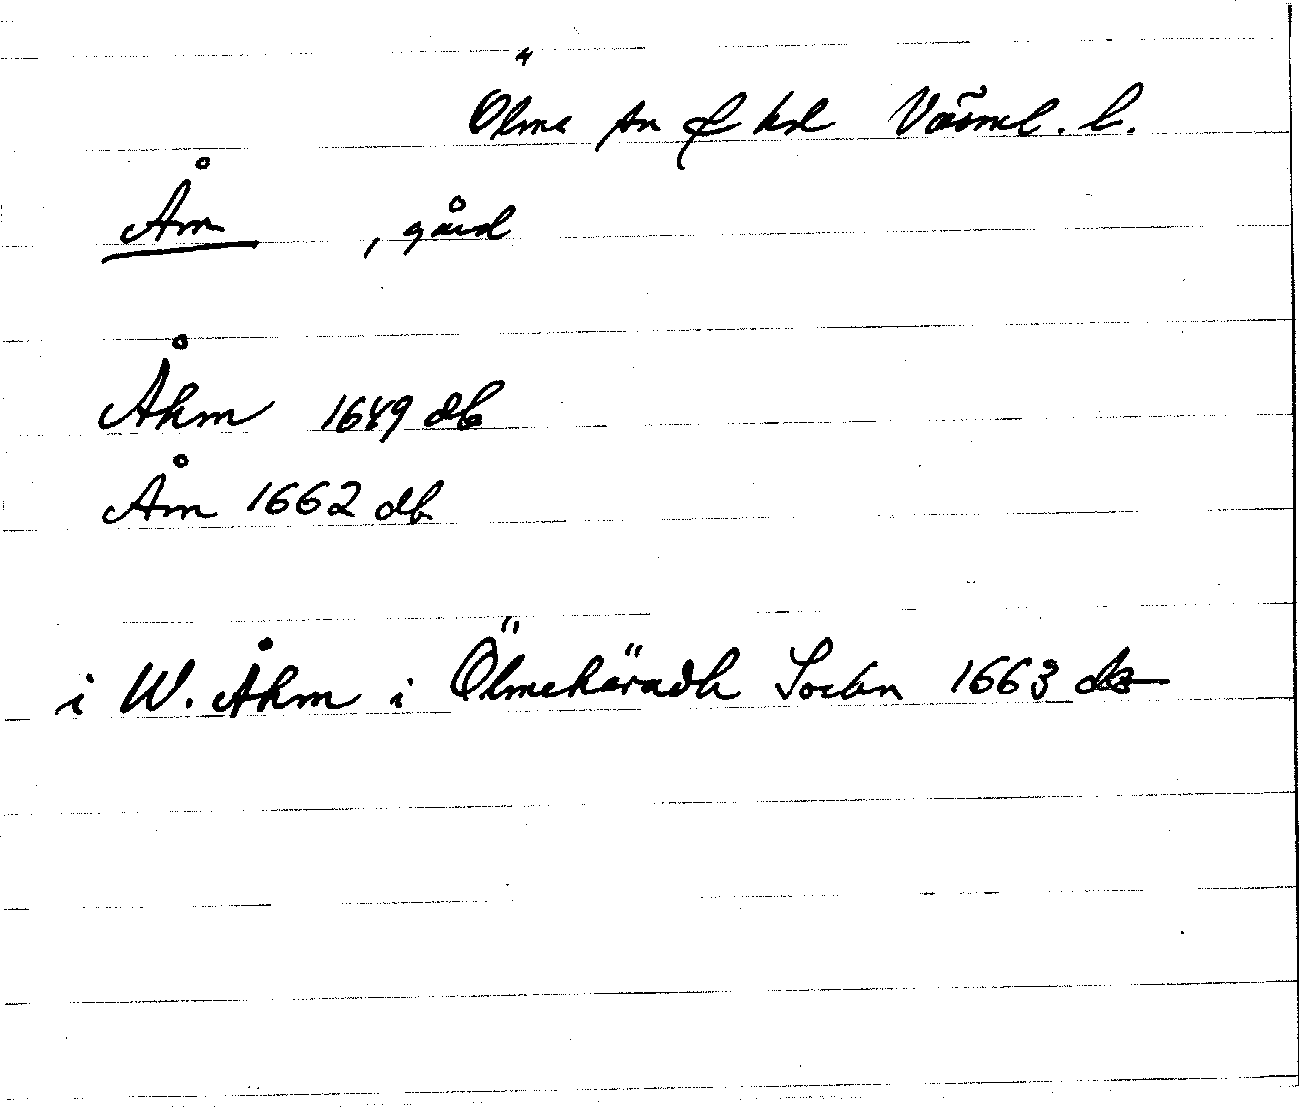 Ölme sn o hd Värml. l.
Åm , gård
Åhm 1649 db
Åm 1662 db
i W. Åhm i Ölmehäradh Sochn 1663 db